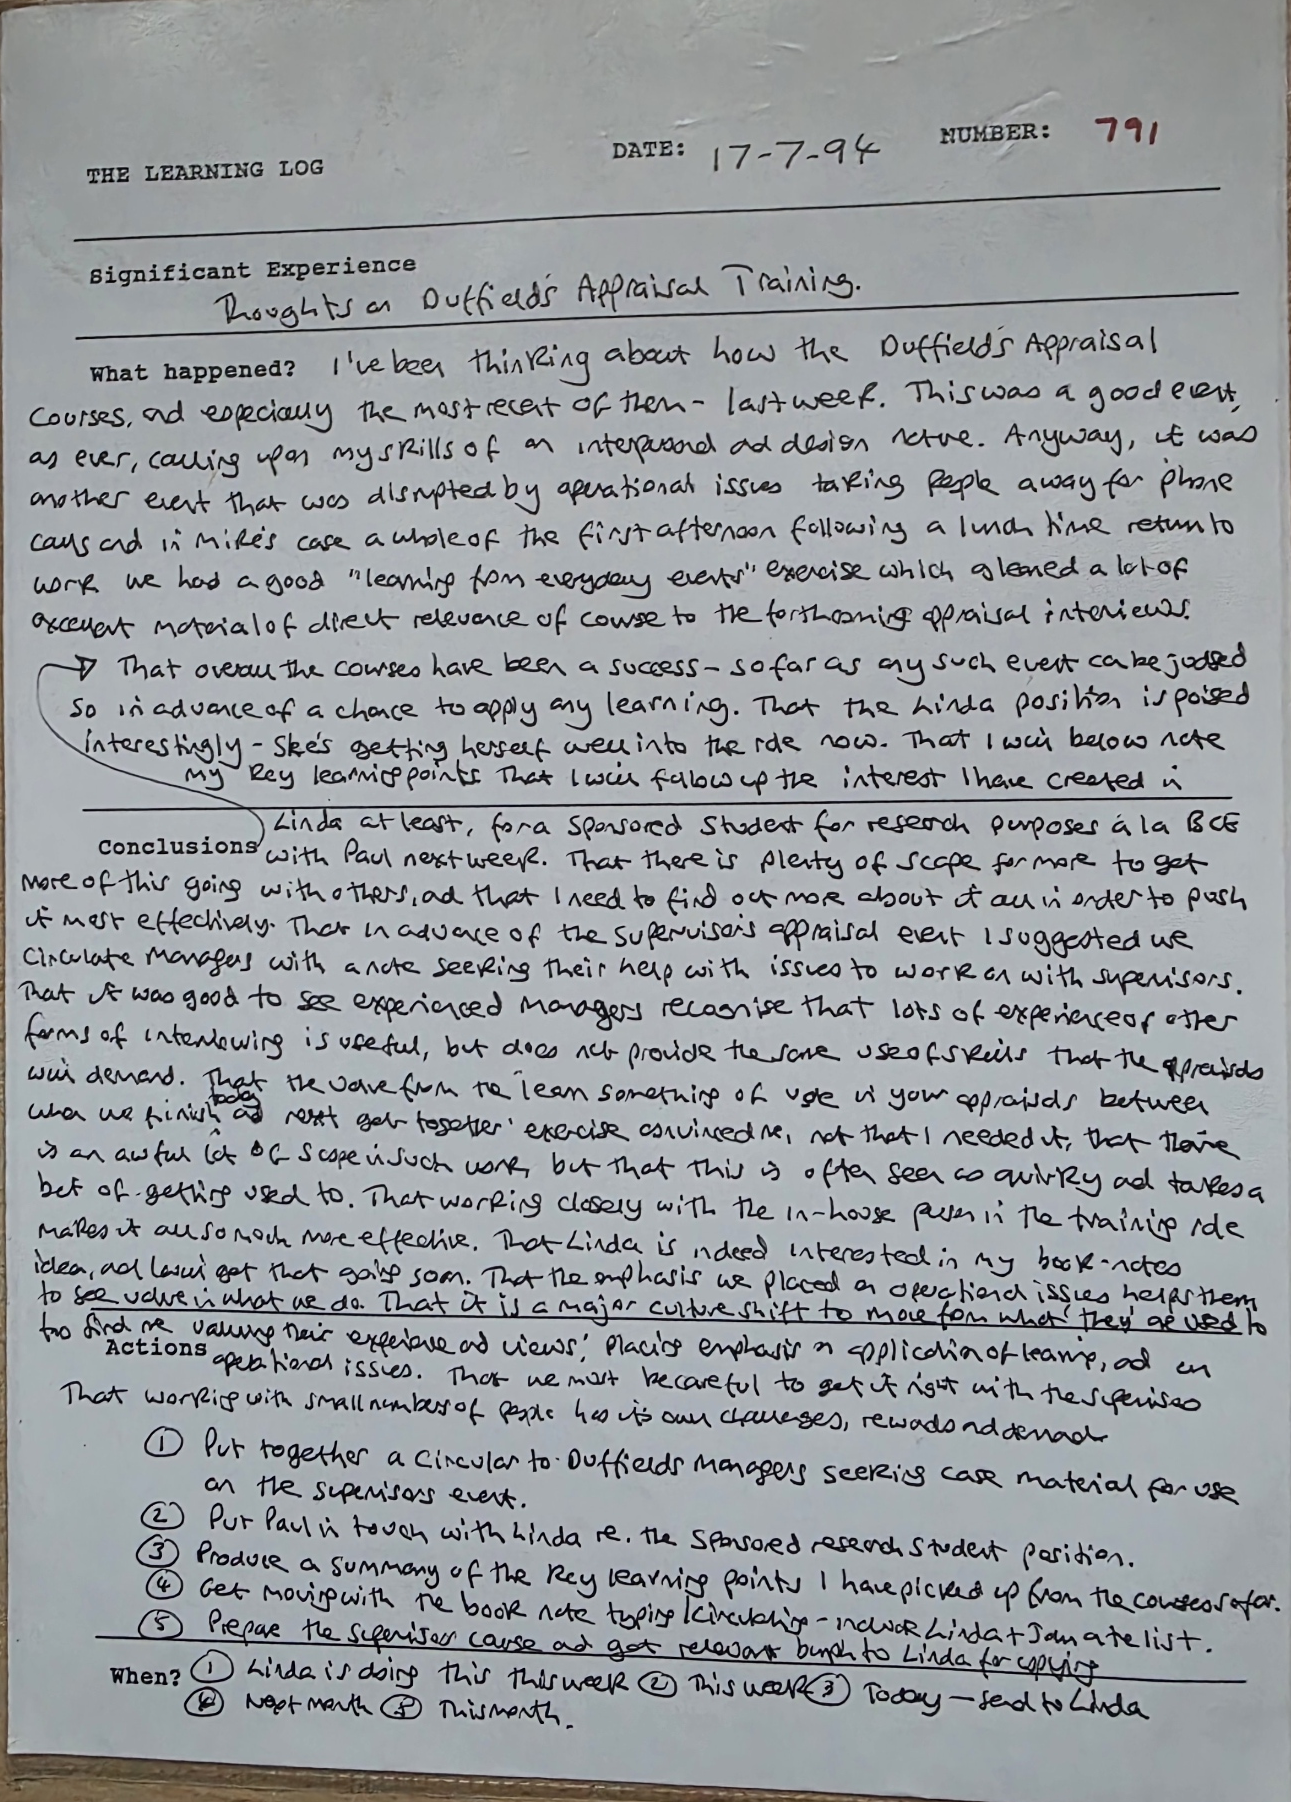 THE LEARNING LOG
DATE: 17-7-94
NUMBER: 791
Significant Experience
Thoughts on Duffields Appraisal Training.
What happened? I've been thinking about how the Duffield's Appraisal
Courses, and especially the most recent of them - last week. This was a good event,
as ever, calling upon my skills of an interpersonal and design nature. Anyway, it was
another event that was disrupted by operational issues taking people away for phone
calls and in Mike's case a whole of the first afternoon following a lunch time return to
work we had a good "learning from everyday events" exercise which gleaned a lot of
excellent material of direct relevance of course to the forthcoming appraisal interviews.
That overall the courses have been a success - so far as any such event can be judged
so in advance of a chance to apply any learning. That the Linda position is poised
interestingly - She's getting herself well into the role now. That I will below note
my key learning points That I will follow up the interest I have created in
Linda at least, for a Sponsored Student for research purposes à la BCE
Conclusions with Paul next week. That there is plenty of scope for more to get
more of this going with others, and that I need to find out more about it all in order to push
it most effectively. That in advance of the supervisors appraisal event I suggested we
circulate managers with a note seeking their help with issues to work on with supervisors.
That it was good to see experienced managers recognise that lots of experience of other
forms of interviewing is useful, but does not provide the same use of skills that the appraisals
will demand. That the value from the 'learn something of use in your appraisals between
when we finish today and next get together' exercise convinced me, not that I needed it, that there
is an awful lot of scope in such work, but that this is often seen as quirky and takes a
bet of getting used to. That working closely with the in-house person in the training role
makes it all so much more effective. That Linda is indeed interested in my book-notes
idea, and I will get that going soon. That the emphasis we placed on operational issues helps them
to see value in what we do. That it is a major culture shift to move from what they're used to
too find me valuing their experience and views; placing emphasis on application of learning, and on
Actions operational issues. That we must be careful to get it right with the supervisors
That working with small numbers of people has its own challenges, rewards and demands
① Put together a circular to Duffields Managers seeking case material for use
on the supervisors event.
② Put Paul in touch with Linda re. the sponsored research student position.
③ Produce a summary of the key learning points I have picked up from the courses so far.
④ Get moving with the book note typing/circulating - include Linda + Jan on the list.
⑤ Prepare the supervisor course and get relevant bumph to Linda for copying
When? ① Linda is doing this this week ② This week ③ Today - send to Linda
④ Next month ⑤ This month.